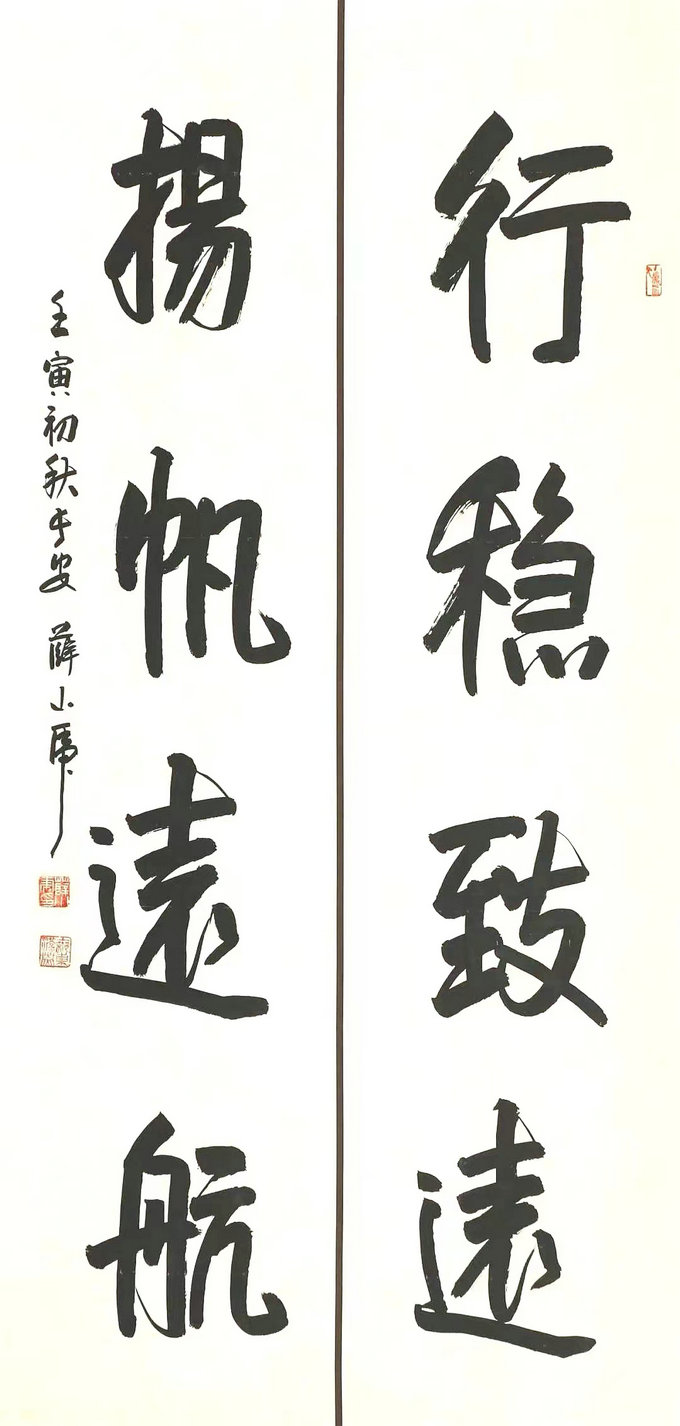 行稳致遠
揚帆遠航
壬寅初秋于安 薛小虎